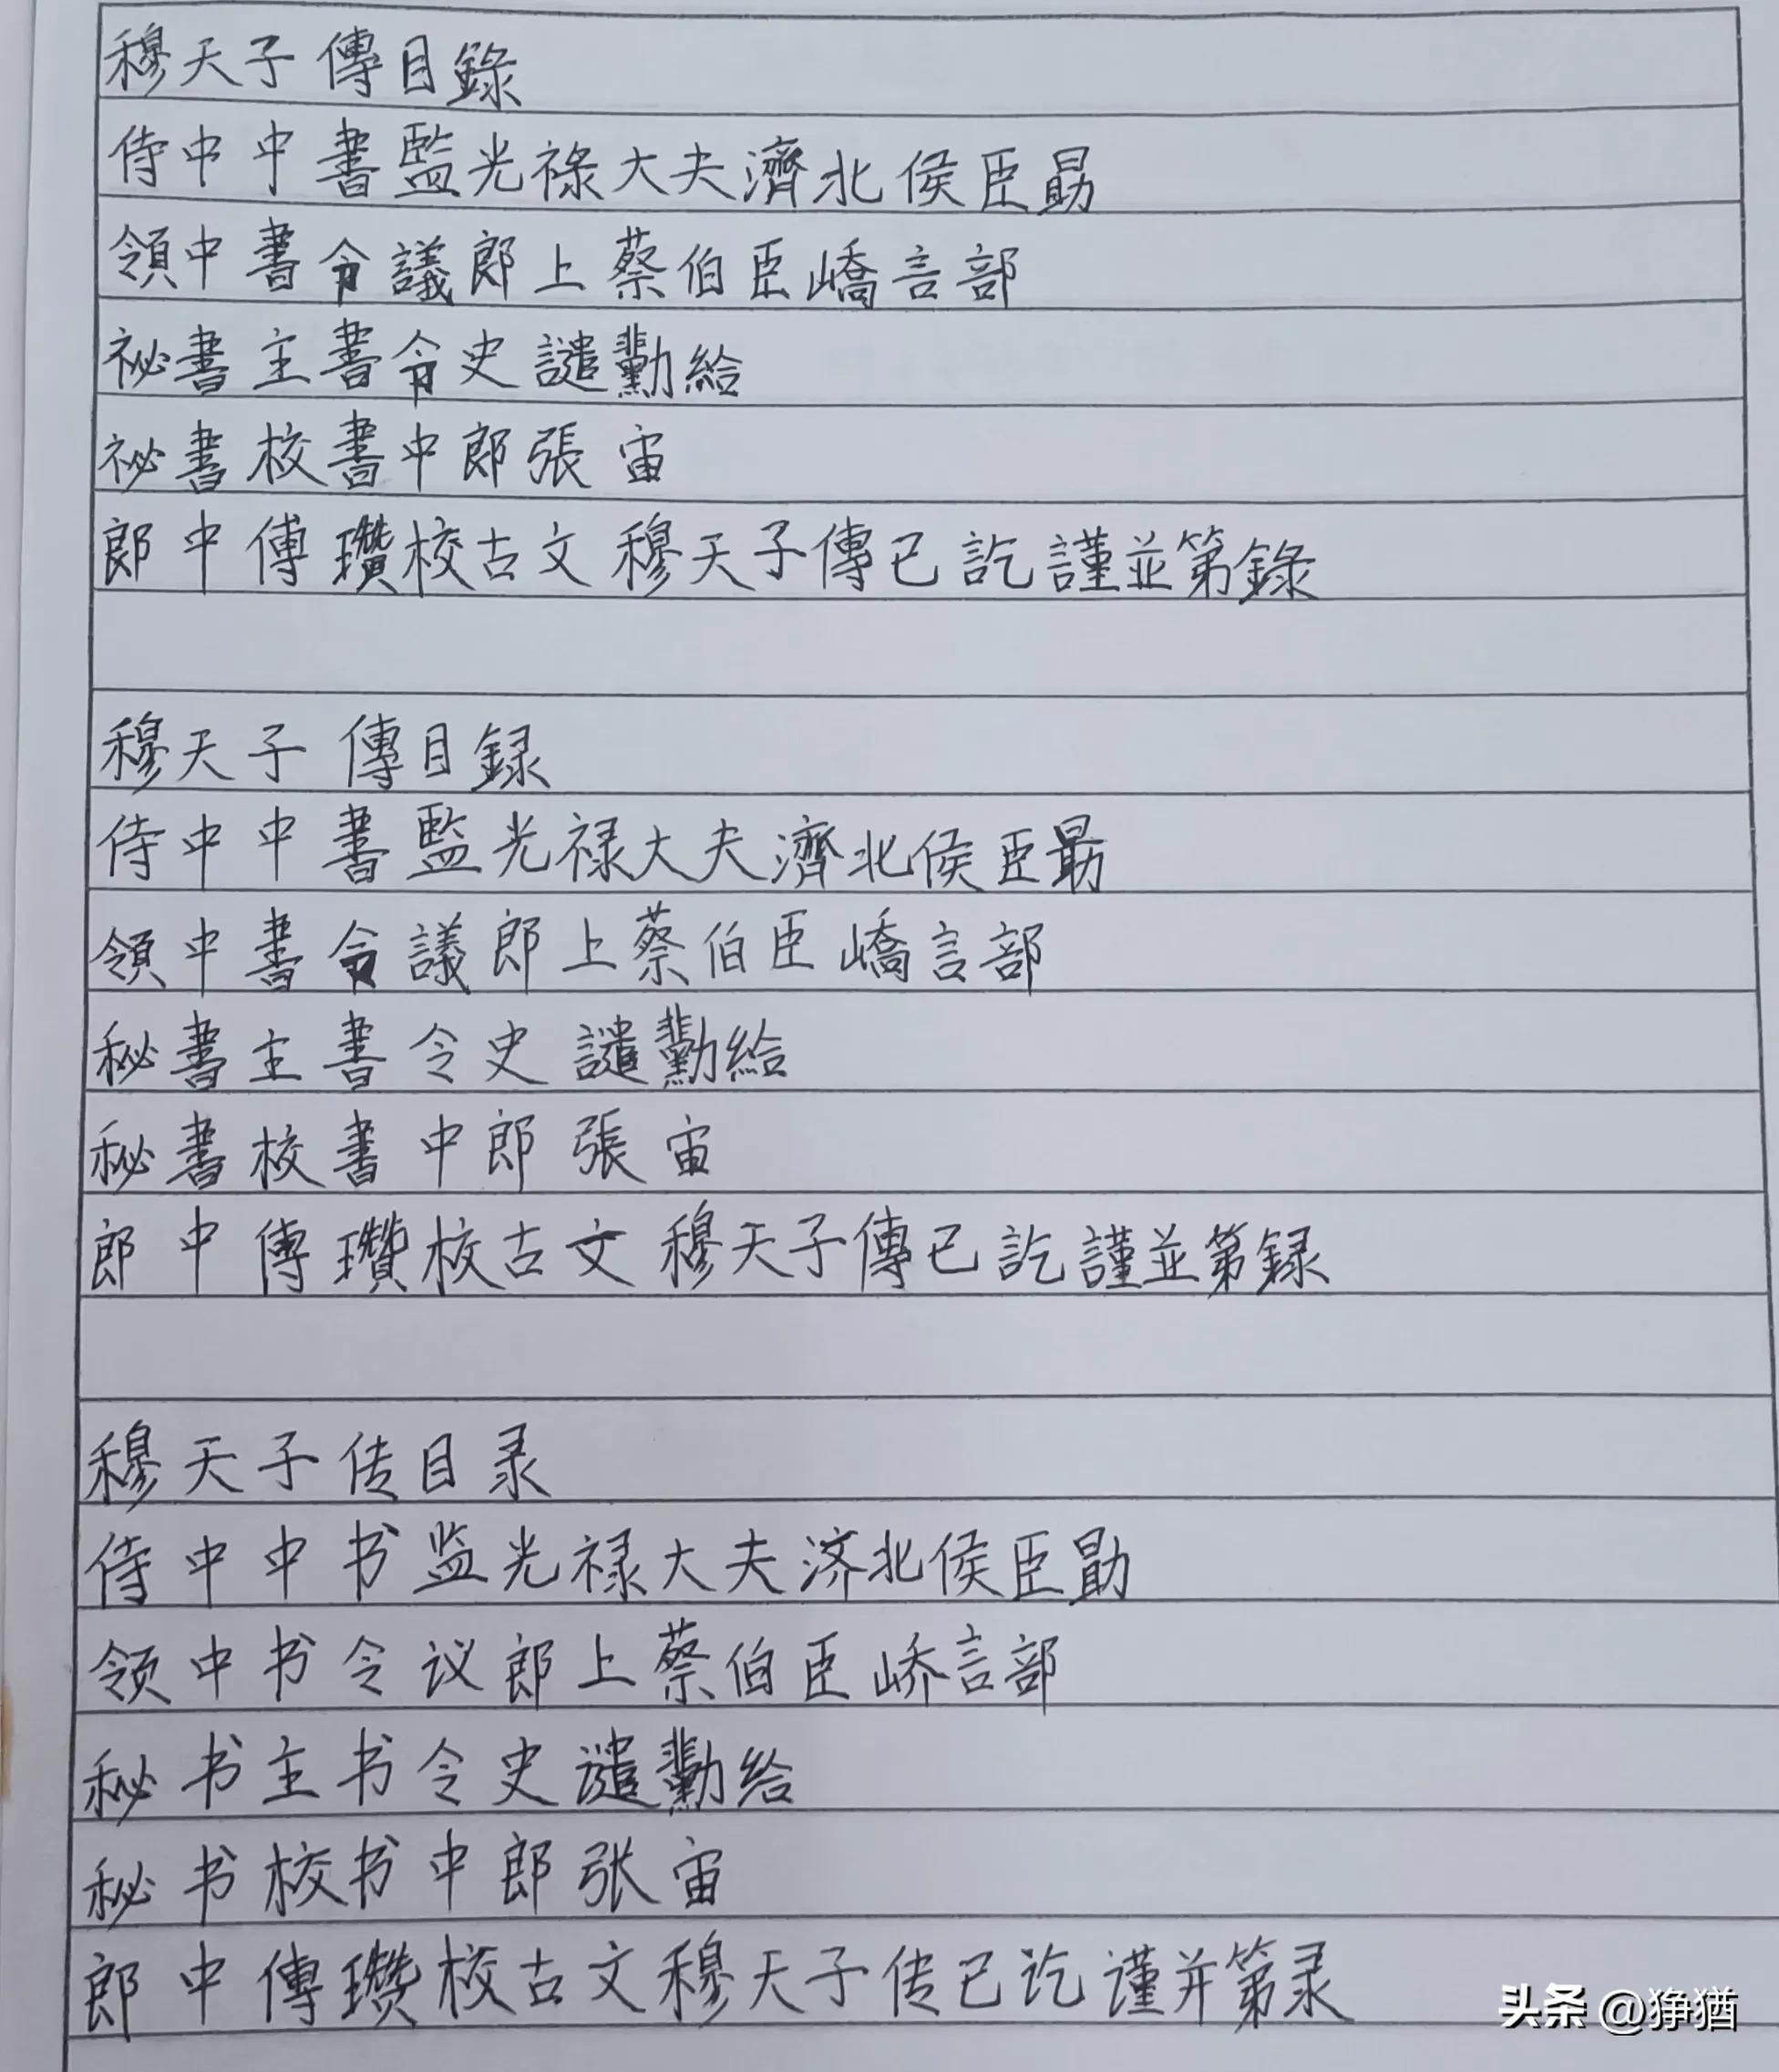 穆天子傳目錄
侍中中書監光祿大夫濟北侯臣勗
領中書令議郎上蔡伯臣嶠言部
祕書主書令史譴勷給
祕書校書中郎張宙
郎中傅瓚校古文穆天子傳已訖謹並第錄
穆天子傳目録
侍中中書監光禄大夫濟北侯臣勗
領中書令議郎上蔡伯臣嶠言部
秘書主書令史譴勷給
秘書校書中郎張宙
郎中傅瓚校古文穆天子傳已訖謹並第録
穆天子传目录
侍中中书监光禄大夫济北侯臣勖
领中书令议郎上蔡伯臣峤言部
秘书主书令史谴勷给
秘书校书中郎张宙
郎中傅瓒校古文穆天子传已讫谨并第录
头条 @狰猶